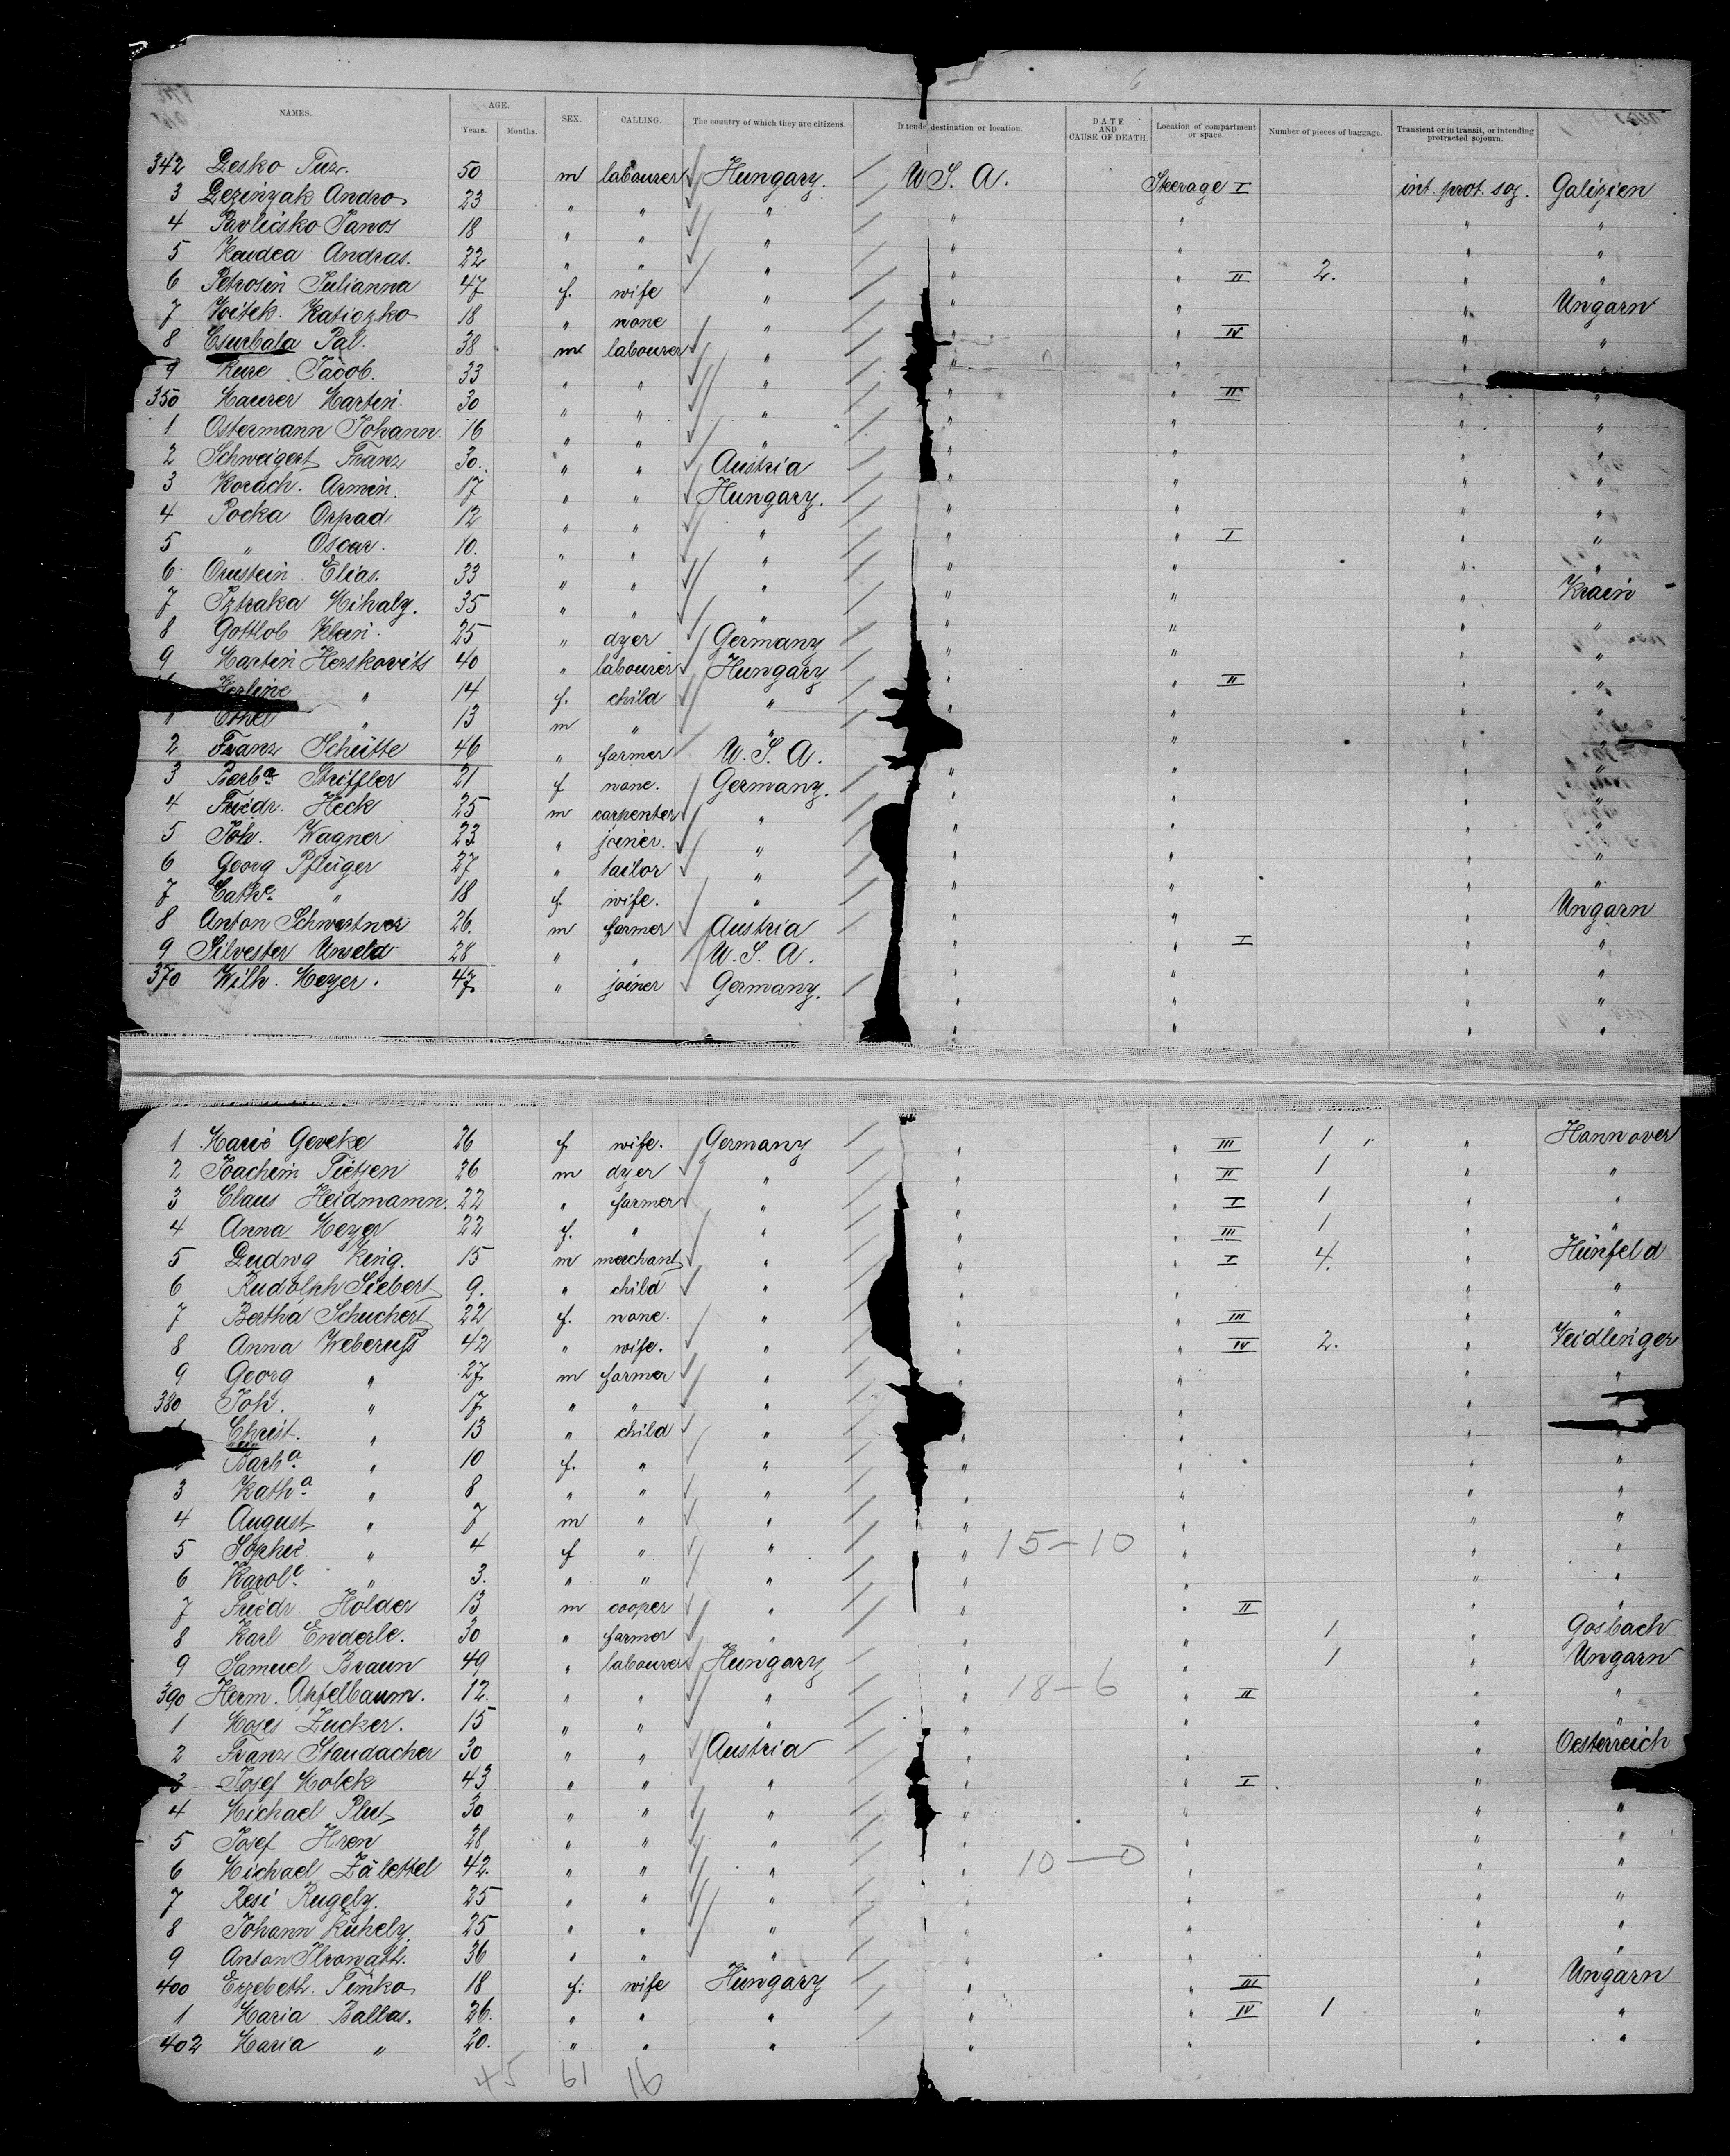 6
NAMES. AGE. Years. Months. SEX. CALLING. The country of which they are citizens. Intended destination or location. DATE AND CAUSE OF DEATH. Location of compartment or space. Number of pieces of baggage. Transient or in transit, or intending protracted sojourn.
342 50 m labourer Hungary. U.S.A. Steerage I int. prot. soj. Galizien
3 Andro 23 " " " " " " "
4 Janos 18 " " " " " " "
5 Andras. 22 " " " " " II 2. " "
6 Petrosin Julianna 47 f. wife " " " " Ungarn
7 Voitek. 18 " none " " " IV " "
8 Csurbala Pal. 38 m labourer " " " " "
9 Kure Jacob. 33 " " " " " II " "
350 Maurer Martin. 30 " " " " " " "
1 Ostermann Johann. 16 " " " " " " "
2 Schweigert Franz 30. " " Austria " " " "
3 Korach. Armin. 17 " " Hungary. " " " "
4 Pocka Arpad 12 " " " " " I " "
5 " Oscar. 10. " " " " " " "
6 Ornstein Elias. 33 " " " " " " Krain
7 Mihaly. 35 " " " " " " "
8 Gottlob Klein. 25 " dyer Germany " " " "
9 Martin Herskovits 40 " labourer Hungary " " II " "
" 14 f. child " " " " "
1 Ethel " 13 m " " " " " "
2 Franz Schütte 46 " farmer U.S.A. " " " "
3 Barb.a Striffler 21 f none. Germany. " " " "
4 Friedr. Heck 25 m carpenter " " " " "
5 Joh. Wagner 23 " joiner. " " " " "
6 Georg Pflüger 27 " tailor " " " " "
7 Cath.e " 18 f. wife. " " " " Ungarn
8 Anton Schwertner 26. m farmer Austria " " I " "
9 Silvester Unseld 28 " " U.S.A. " " " "
370 Wilh. Meyer. 47. " joiner Germany. " " " "
1 Marie Geveke 26 f. wife. Germany " " III 1 " Hannover
2 Joachim Tietjen 26 m dyer " " " II 1 " "
3 Claus Heidmann. 22 " farmer " " " I 1 " "
4 Anna Meyer 22 f. " " " " III 1 " "
5 Ludwg King. 15 m merchant " " " I 4. " Hünfeld
6 Rudolph Siebert 9. " child " " " " "
7 Bertha Schuchert 22 f. none. " " " III " "
8 Anna Weberuß 42 " wife. " " " IV 2. " Veidlinger
9 Georg " 27. m farmer " " " " "
380 Joh. " 17. " " " " " "
Christ. " 13 " child " " " "
Barb.a " 10 f. " " " " " "
3 Kath.a " 8 " " " " " " "
4 August " 7 m " " " " " "
5 Sophie " 4 f " " " 15-10 " " "
6 Karol.e " 3. " " " " " " "
7 Friedr. Holder 13 m cooper " " " II " "
8 Karl Enderle. 30 " farmer " " " 1 " Gosbach
9 Samuel Braun 49 " labourer Hungary " " 1 " Ungarn
390 Herm. Apfelbaum. 12. " " " " 18-6 " II " "
1 Moses Zucker. 15 " " " " " " "
2 Franz Staudacher 30 " " Austria " " " Oesterreich
3 Josef Molek 43 " " " " " I "
4 Michael Plut 30 " " " " " " "
5 Josef Hren 28 " " " " " " "
6 Michael 42. " " " " 10-0 " " "
7 Resi 25 " " " " " " "
8 Johann 25 " " " " " " "
9 Anton 36 " " " " " " "
400 Erzebeth. Timko 18 f. wife Hungary " " III " Ungarn
1 Maria Ballas. 26. " " " " " IV 1 " "
402 Maria " 20. " " " " " " "
45 61 16